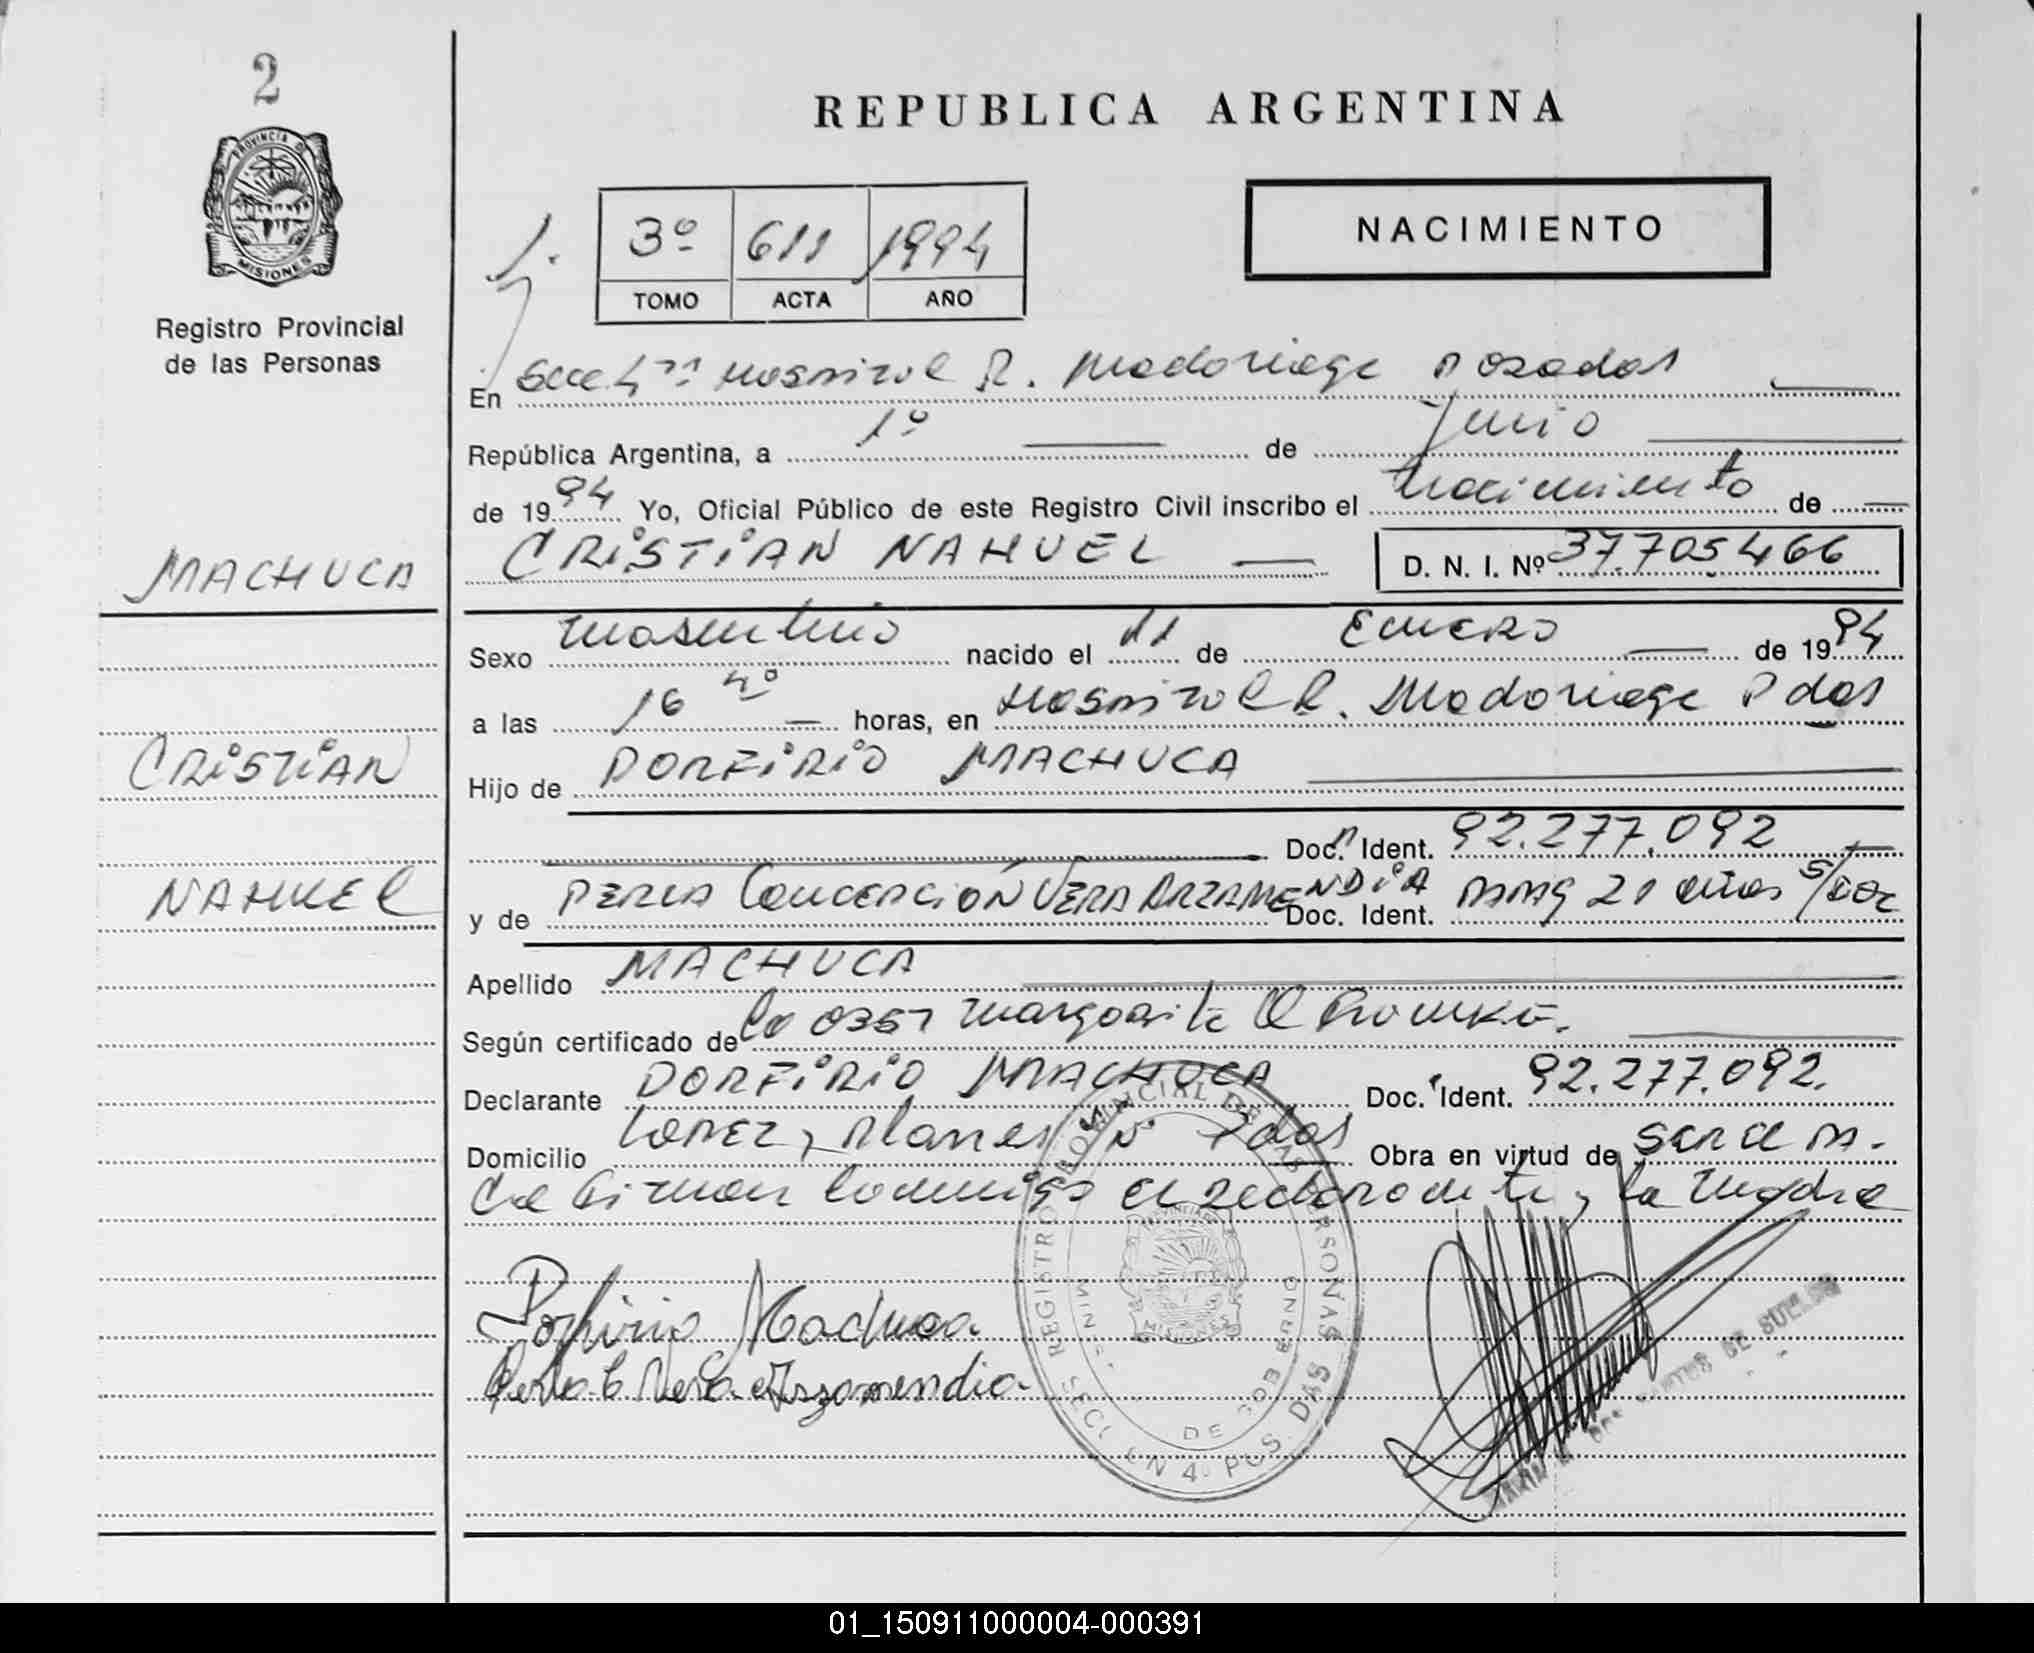 2
PROVINCIA DE
MISIONES
Registro Provincial
de las Personas
REPUBLICA ARGENTINA
NACIMIENTO
3º 611 1994
TOMO ACTA AÑO
En Secc 4ª Hospital R. Madariaga Posadas
República Argentina, a 1º de Junio
de 1994 Yo, Oficial Público de este Registro Civil inscribo el nacimiento de
MACHUCA
CRISTIAN NAHUEL D. N. I. Nº 37.705.466
Sexo masculino nacido el 11 de Enero de 1994
a las 16 horas, en Hospital R. Madariaga Pdas
CRISTIAN
Hijo de PORFIRIO MACHUCA
Doc. Ident. 92.277.092
NAHUEL
y de PERLA CONCEPCIÓN VERA ARZAMENDIA Doc. Ident. 21 años s/doc
Apellido MACHUCA
Según certificado de la Obst Margarita
Declarante PORFIRIO MACHUCA Doc. Ident. 92.277.092.
Domicilio LOPEZ y Planes S/Nº Pdas Obra en virtud de ser el pa.
dre firman conmigo el declarante y la madre
Porfirio Machuca
Perla C Vera Arzamendia
REGISTRO PROVINCIAL DE LAS PERSONAS
DE GOBIERNO
MISIONES